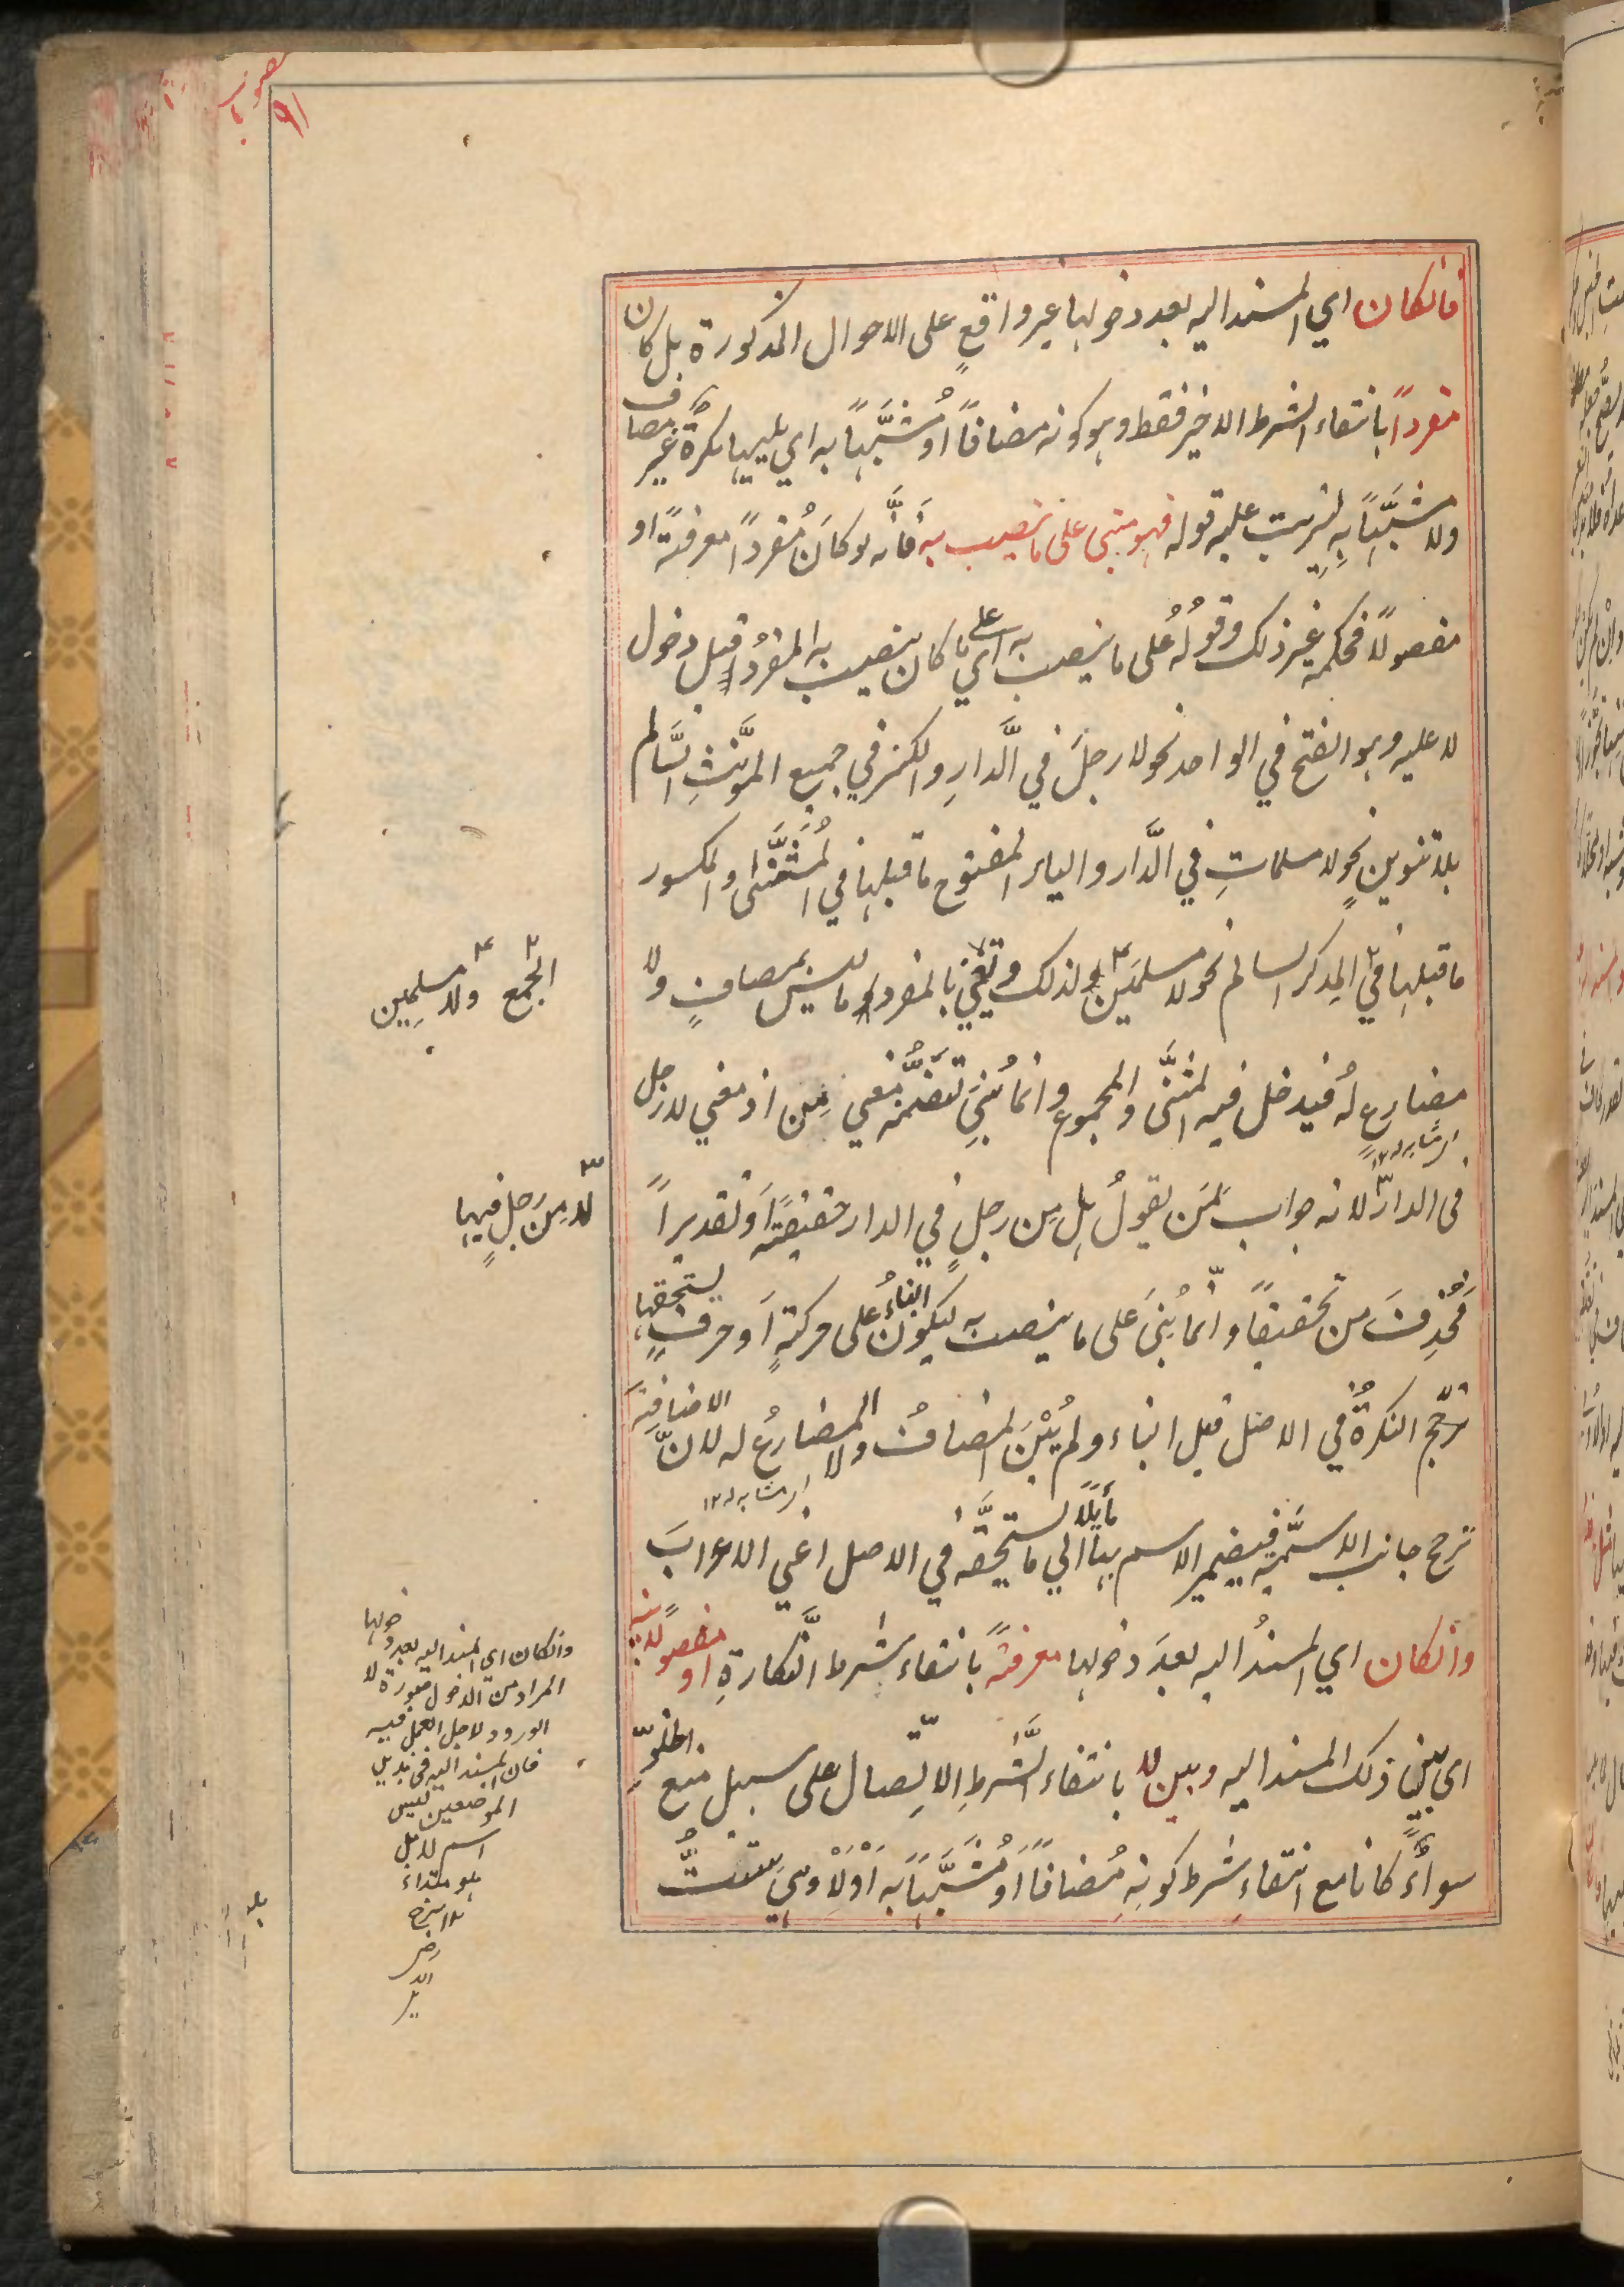 فانكان اي المسند اليه بعد دخولها غير واقعٍ على الاحوال المذكورة بل كان
مفرداً بانتفاء الشرط الاخير فقط وهو كونه مضافاً او مُشبَّهاً به اي يليها نكرةٌ غير مضاف
ولا مشبَّهاً بِه ليترتب عليه قوله فهو مبني على ما ينصب به فَانَّه لو كانَ مُفرداً معرفةً او
مفصولاً فحكمه غير ذلك وقولُهُ على ما ينصب به اي على ما كان ينصب به المفردُ قبل دخول
لا عليه وهو الفتح في الواحد نحو لا رجلَ في الدَّارِ والكسر في جمع المؤنَّثِ السَّالم
بلا تنوينٍ نحو لا مسلماتِ في الدَّار والياء المفتوح ما قبلها في المُثَنَّى والمكسور
ما قبلها في ٢ المذكر السالم نحو لا مسلمَين ٤ ولذلك ونعني بالمفرد ما ليس بمضافٍ ولا
مضارعٍ لهُ فيدخل فيه المثنَّى والمجموع وانما بُنِيَ لتَضَمُّنه معني مِن اذ معني لا رجل
اي مشابه له ١٢
في الدار ٣ لانه جواب لمَن يقولُ هل مِن رجلٍ في الدار حقيقةً اَو تقديراً
فحُذِفَت من تخفيفاً وانّما بُنيَ على ما ينصب به ليكونَ البناءُ على حركةٍ اَو حرفٍ يستحقها
النكرةُ في الاصل قبل البناء ولم يُبْنَ المضافُ ولا المضارعُ له لانّ الاضافةَ
اي مشابه له ١٢
ترجح جانب الاسميَّة فيصير الاسم بها مائلاً الي ما يستحقّه في الاصل اعني الاعرابَ
وانكان اي المسندُ اليه بعدَ دخولها معرفةً بانتفاء شرط النَّكارةِ او مفصولاً بينه
اي بين ذلك المسند اليه وبين لا بانتفاء الشَّرطِ الاتّصال على سبيل منع الخلوّ
سواءٌ كانا مع انتفاءِ شرط كونِهِ مُضافاً اَو مُشَبَّهاً بهِ اَوْ لَاْ وهي ستّ
٢ الجمع
٤ ولا مسلمِين
٣ لا مِن رجلٍ فيها
وانكان اي المسند اليه بعد دخولها
المراد من الدخول صورة لا
الورود لاجل العمل فيه
فان المسند اليه في هذين
الموضعين ليس
اسم لا بل
هو مبتداء